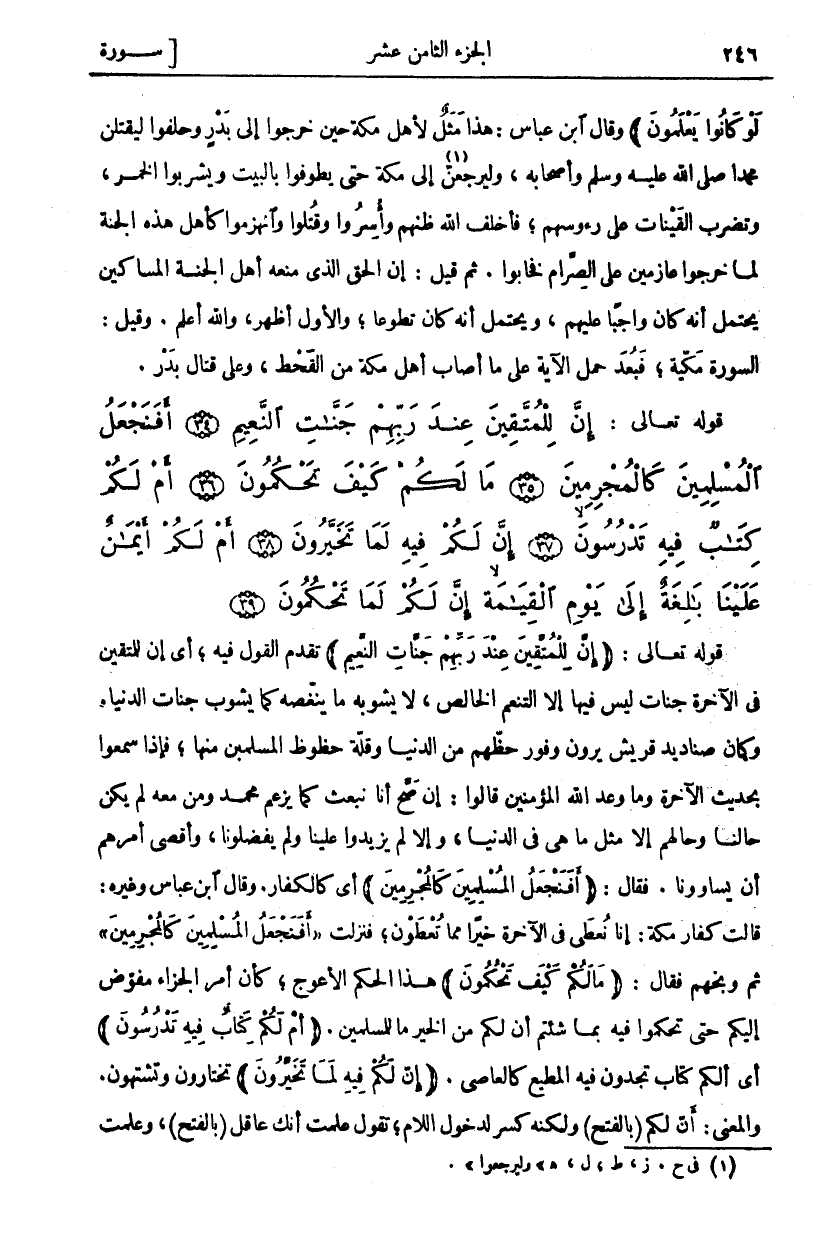 ٢٤٦ الجزء الثامن عشر [ سـورة
لَوْ كَانُوا يَعْلَمُونَ ﴾ وقال ٱبن عباس : هذا مَثَلٌ لأهل مكة حين خرجوا إلى بَدْرٍ وحلفوا ليقتلن
محمدا صلى الله عليـه وسلم وأصحابه ، وليرجعُنّ (١) إلى مكة حتى يطوفوا بالبيت ويشربوا الخمـر ،
وتضرب القَيْنات على رءوسهم ؛ فأخلف الله ظنهم وأُسِرُوا وقُتلوا وٱنهزموا كأهل هذه الجنة
لمـا خرجوا عازمين على الصِّرام فخابوا . ثم قيل : إن الحق الذى منعه أهل الجنـة المساكين
يحتمل أنه كان واجبًا عليهم ، ويحتمل أنه كان تطوعا ؛ والأول أظهر، والله أعلم . وقيل :
السورة مَكّية ؛ فَبُعد حمل الآية على ما أصاب أهل مكة من القَحْط ، وعلى قتال بَدْر .
قوله تعـالى : إِنَّ لِلْمُتَّقِينَ عِندَ رَبِّهِمْ جَنَّـٰتِ ٱلنَّعِيمِ ﴿٣٤﴾ أَفَنَجْعَلُ
ٱلْمُسْلِمِينَ كَالْمُجْرِمِينَ ﴿٣٥﴾ مَا لَكُمْ كَيْفَ تَحْكُمُونَ ﴿٣٦﴾ أَمْ لَكُمْ
كِتَـٰبٌ فِيهِ تَدْرُسُونَ ﴿٣٧﴾ إِنَّ لَكُمْ فِيهِ لَمَا تَخَيَّرُونَ ﴿٣٨﴾ أَمْ لَكُمْ أَيْمَـٰنٌ
عَلَيْنَا بَـٰلِغَةٌ إِلَىٰ يَوْمِ ٱلْقِيَـٰمَةِ إِنَّ لَكُمْ لَمَا تَحْكُمُونَ ﴿٣٩﴾
قوله تعـالى : ﴿ إِنَّ لِلْمُتَّقِينَ عِنْدَ رَبِّهِمْ جَنَّاتِ النَّعِيمِ ﴾ تقدم القول فيه ؛ أى إن للتقين
فى الآخرة جنات ليس فيها إلا التنعم الخالص ، لا يشوبه ما ينغّصه كما يشوب جنات الدنيا .
وكان صناديد قريش يرون وفور حظّهم من الدنيـا وقلّة حظوظ المسلمين منها ؛ فإذا سمعوا
بحديث الآخرة وما وعد الله المؤمنين قالوا : إن صَحّ أنا نبعث كما يزعم محمـد ومن معه لم يكن
حالنـا وحالهم إلا مثل ما هى فى الدنيـا ، وإلا لم يزيدوا علينا ولم يفضلونا ، وأقصى أمرهم
أن يساوونا . فقال : ﴿ أَفَنَجْعَلُ الْمُسْلِمِينَ كَالْمُجْرِمِينَ ﴾ أى كالكفار . وقال ٱبن عباس وغيره :
قالت كفار مكة : إنا نُعطَى فى الآخرة خيرًا مما تُعْطَوْن ؛ فنزلت « أَفَنَجْعَلُ الْمُسْلِمِينَ كَالْمُجْرِمِينَ »
ثم وبخهم فقال : ﴿ مَالَكُمْ كَيْفَ تَحْكُمُونَ ﴾ هـذا الحكم الأعوج ؛ كأن أمر الجزاء مفوّض
إليكم حتى تحكموا فيه بمـا شئتم أن لكم من الخير ما للسلمين . ﴿ أَمْ لَكُمْ كِتَابٌ فِيهِ تَدْرُسُونَ ﴾
أى ألكم كتاب تجدون فيه المطيع كالعاصى . ﴿ إِنَّ لَكُمْ فِيهِ لَمَـا تَخَيَّرُونَ ﴾ تختارون وتشتهون .
والمعنى : أَنّ لكم (بالفتح) ولكنه كسر لدخول اللام ؛ تقول علمت أنك عاقل (بالفتح) ، وعلمت
(١) فى ح . ز ، ط ، ل ، ه « وليرجعوا » .